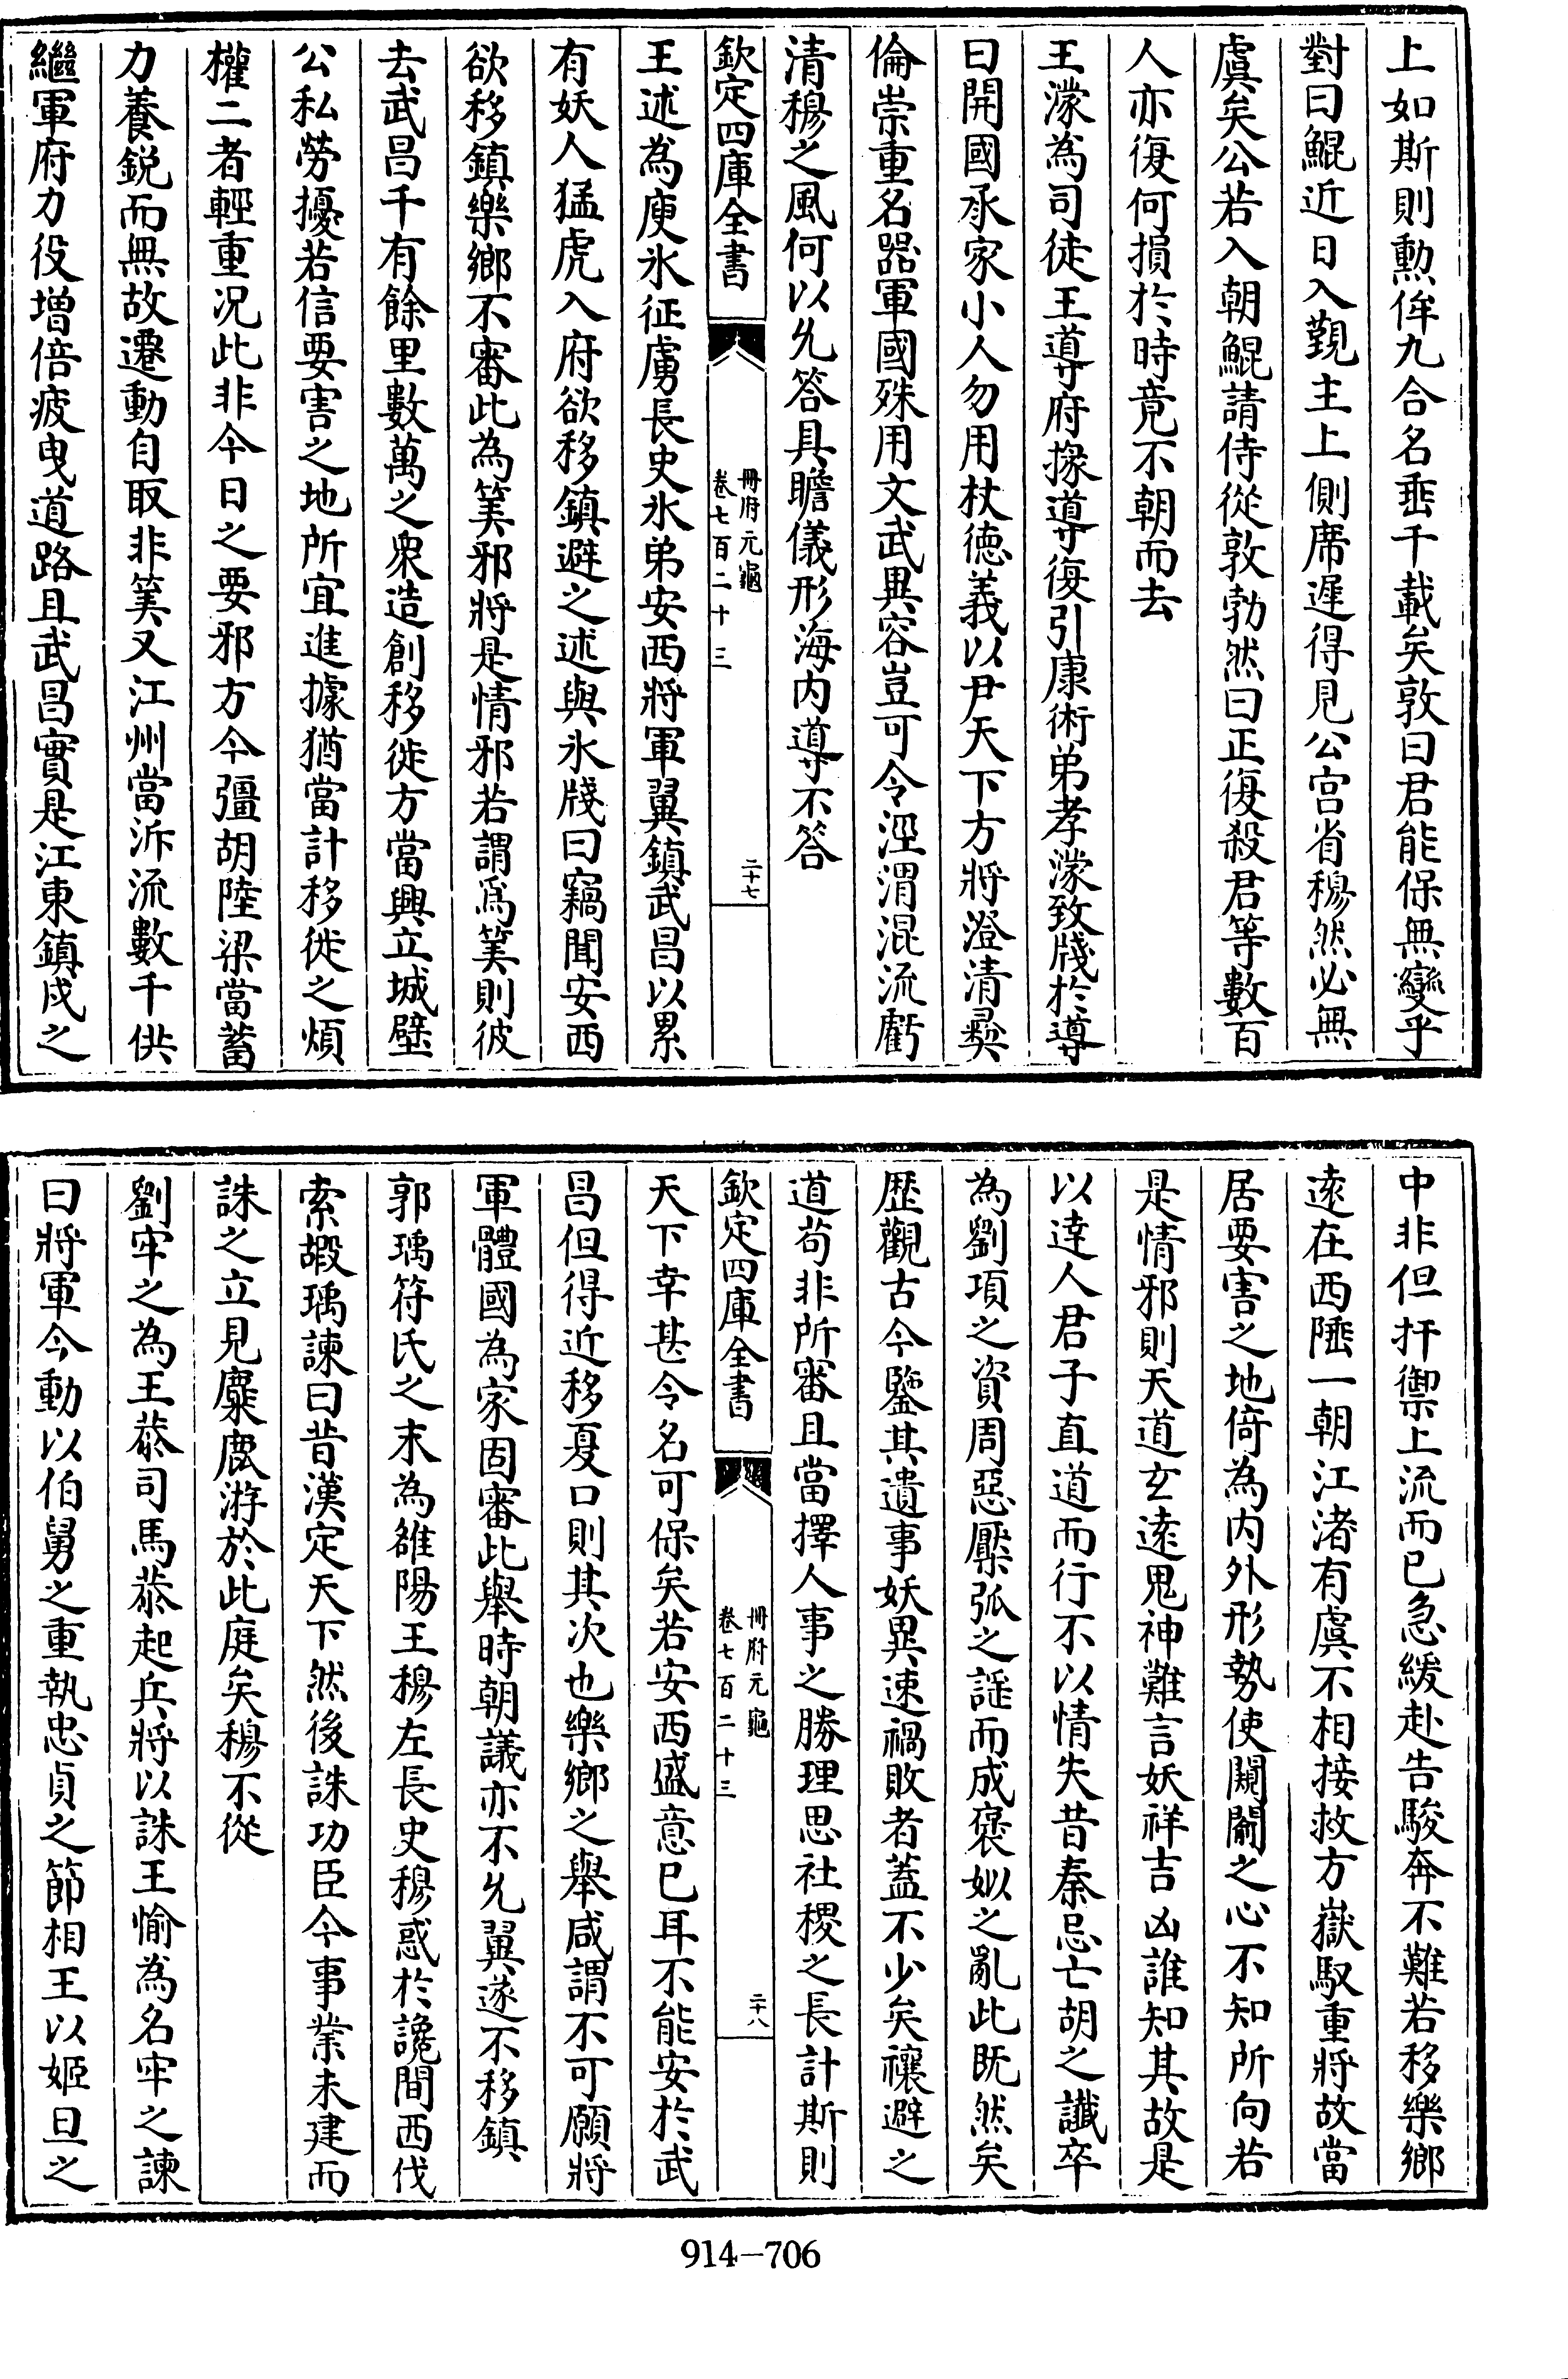 上如斯則勲侔九合名垂千載矣敦曰君能保無變乎
對曰鯤近日入覲主上側席遲得見公宫省穆然必無
虞矣公若入朝鯤請侍從敦勃然曰正復殺君等數百
人亦復何損於時竟不朝而去
王濛為司徒王導府掾導復引康術弟孝濛致牋於導
曰開國承家小人勿用杖徳義以尹天下方將澄清彛
倫崇重名器軍國殊用文武異容豈可令涇渭混流虧
清穆之風何以允答具瞻儀形海内導不答
欽定四庫全書
冊府元龜
卷七百二十三
二十七
王述為庾氷征虜長史氷弟安西將軍翼鎮武昌以累
有妖人猛虎入府欲移鎮避之述與氷牋曰竊聞安西
欲移鎮樂鄉不審此為筭邪將是情邪若謂爲筭則彼
去武昌千有餘里數萬之衆造創移徙方當興立城壁
公私勞擾若信要害之地所宜進據猶當計移徙之煩
權二者輕重况此非今日之要邪方今彊胡陸梁當蓄
力養鋭而無故遷動自取非筭又江州當泝流數千供
繼軍府力役增倍疲曳道路且武昌實是江東鎮戍之
中非但扞禦上流而已急緩赴告駿奔不難若移樂鄉
逺在西陲一朝江渚有虞不相接救方嶽馭重將故當
居要害之地倚為内外形勢使闚𨷲之心不知所向若
是情邪則天道玄逺鬼神難言妖祥吉凶誰知其故是
以達人君子直道而行不以情失昔秦忌亡胡之讖卒
為劉項之資周惡檿弧之謡而成褒姒之亂此既然矣
歴觀古今鑒其遺事妖異速禍敗者蓋不少矣禳避之
道苟非所審且當擇人事之勝理思社稷之長計斯則
欽定四庫全書
冊府元龜
卷七百二十三
二十八
天下幸甚令名可保矣若安西盛意已耳不能安於武
昌但得近移夏口則其次也樂鄉之舉咸謂不可願將
軍體國為家固審此舉時朝議亦不允翼遂不移鎮
郭瑀符氏之末為雒陽王穆左長史穆惑於讒間西伐
索嘏瑀諫曰昔漢定天下然後誅功臣今事業未建而
誅之立見麋鹿游於此庭矣穆不從
劉牢之為王恭司馬恭起兵將以誅王愉為名牢之諫
曰將軍今動以伯舅之重執忠貞之節相王以姬旦之
914-706